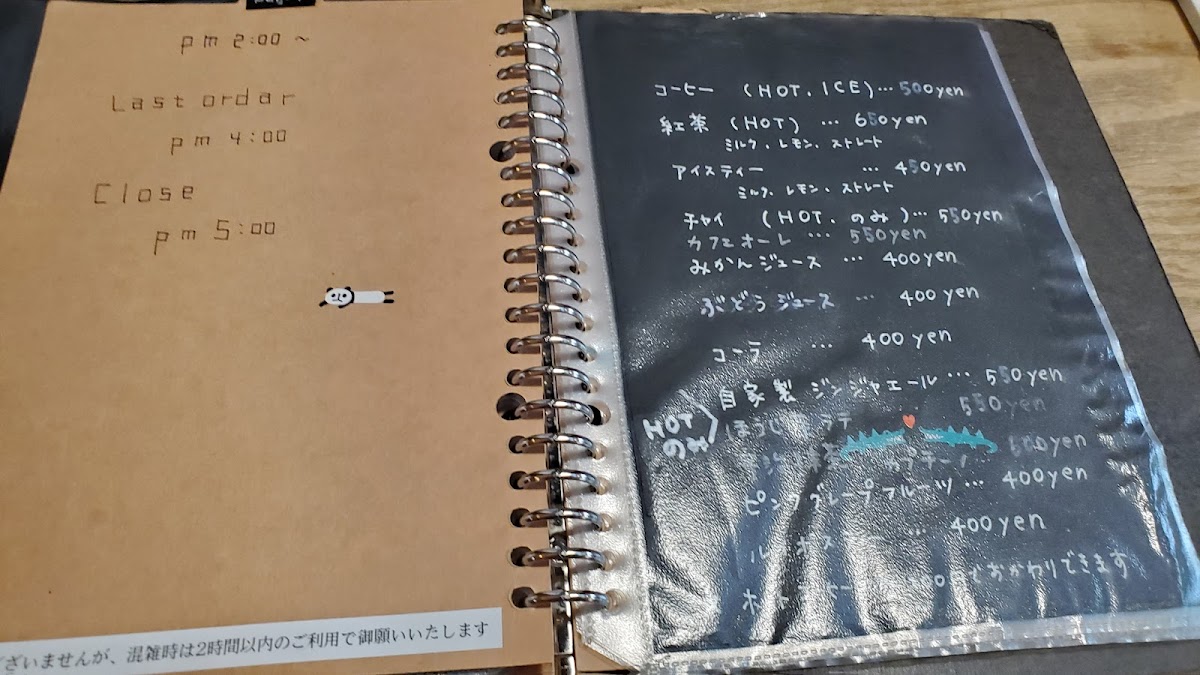 pm 2:00 ~
Last ordar
pm 4:00
Close
pm 5:00
ございませんが、混雑時は2時間以内のご利用で御願いいたします
コーヒー (HOT. ICE)… 500yen
紅茶 (HOT) … 650yen
ミルク、レモン、ストレート
アイスティー … 450yen
ミルク、レモン、ストレート
チャイ (HOT. のみ)… 550yen
カフェオーレ … 550yen
みかんジュース … 400yen
ぶどうジュース … 400yen
コーラ … 400yen
自家製 ジンジャエール … 550yen
HOT のみ
ラテ 550yen
カプチーノ 600yen
ピンクグレープフルーツ … 400yen
… 400yen
でおかわりできます